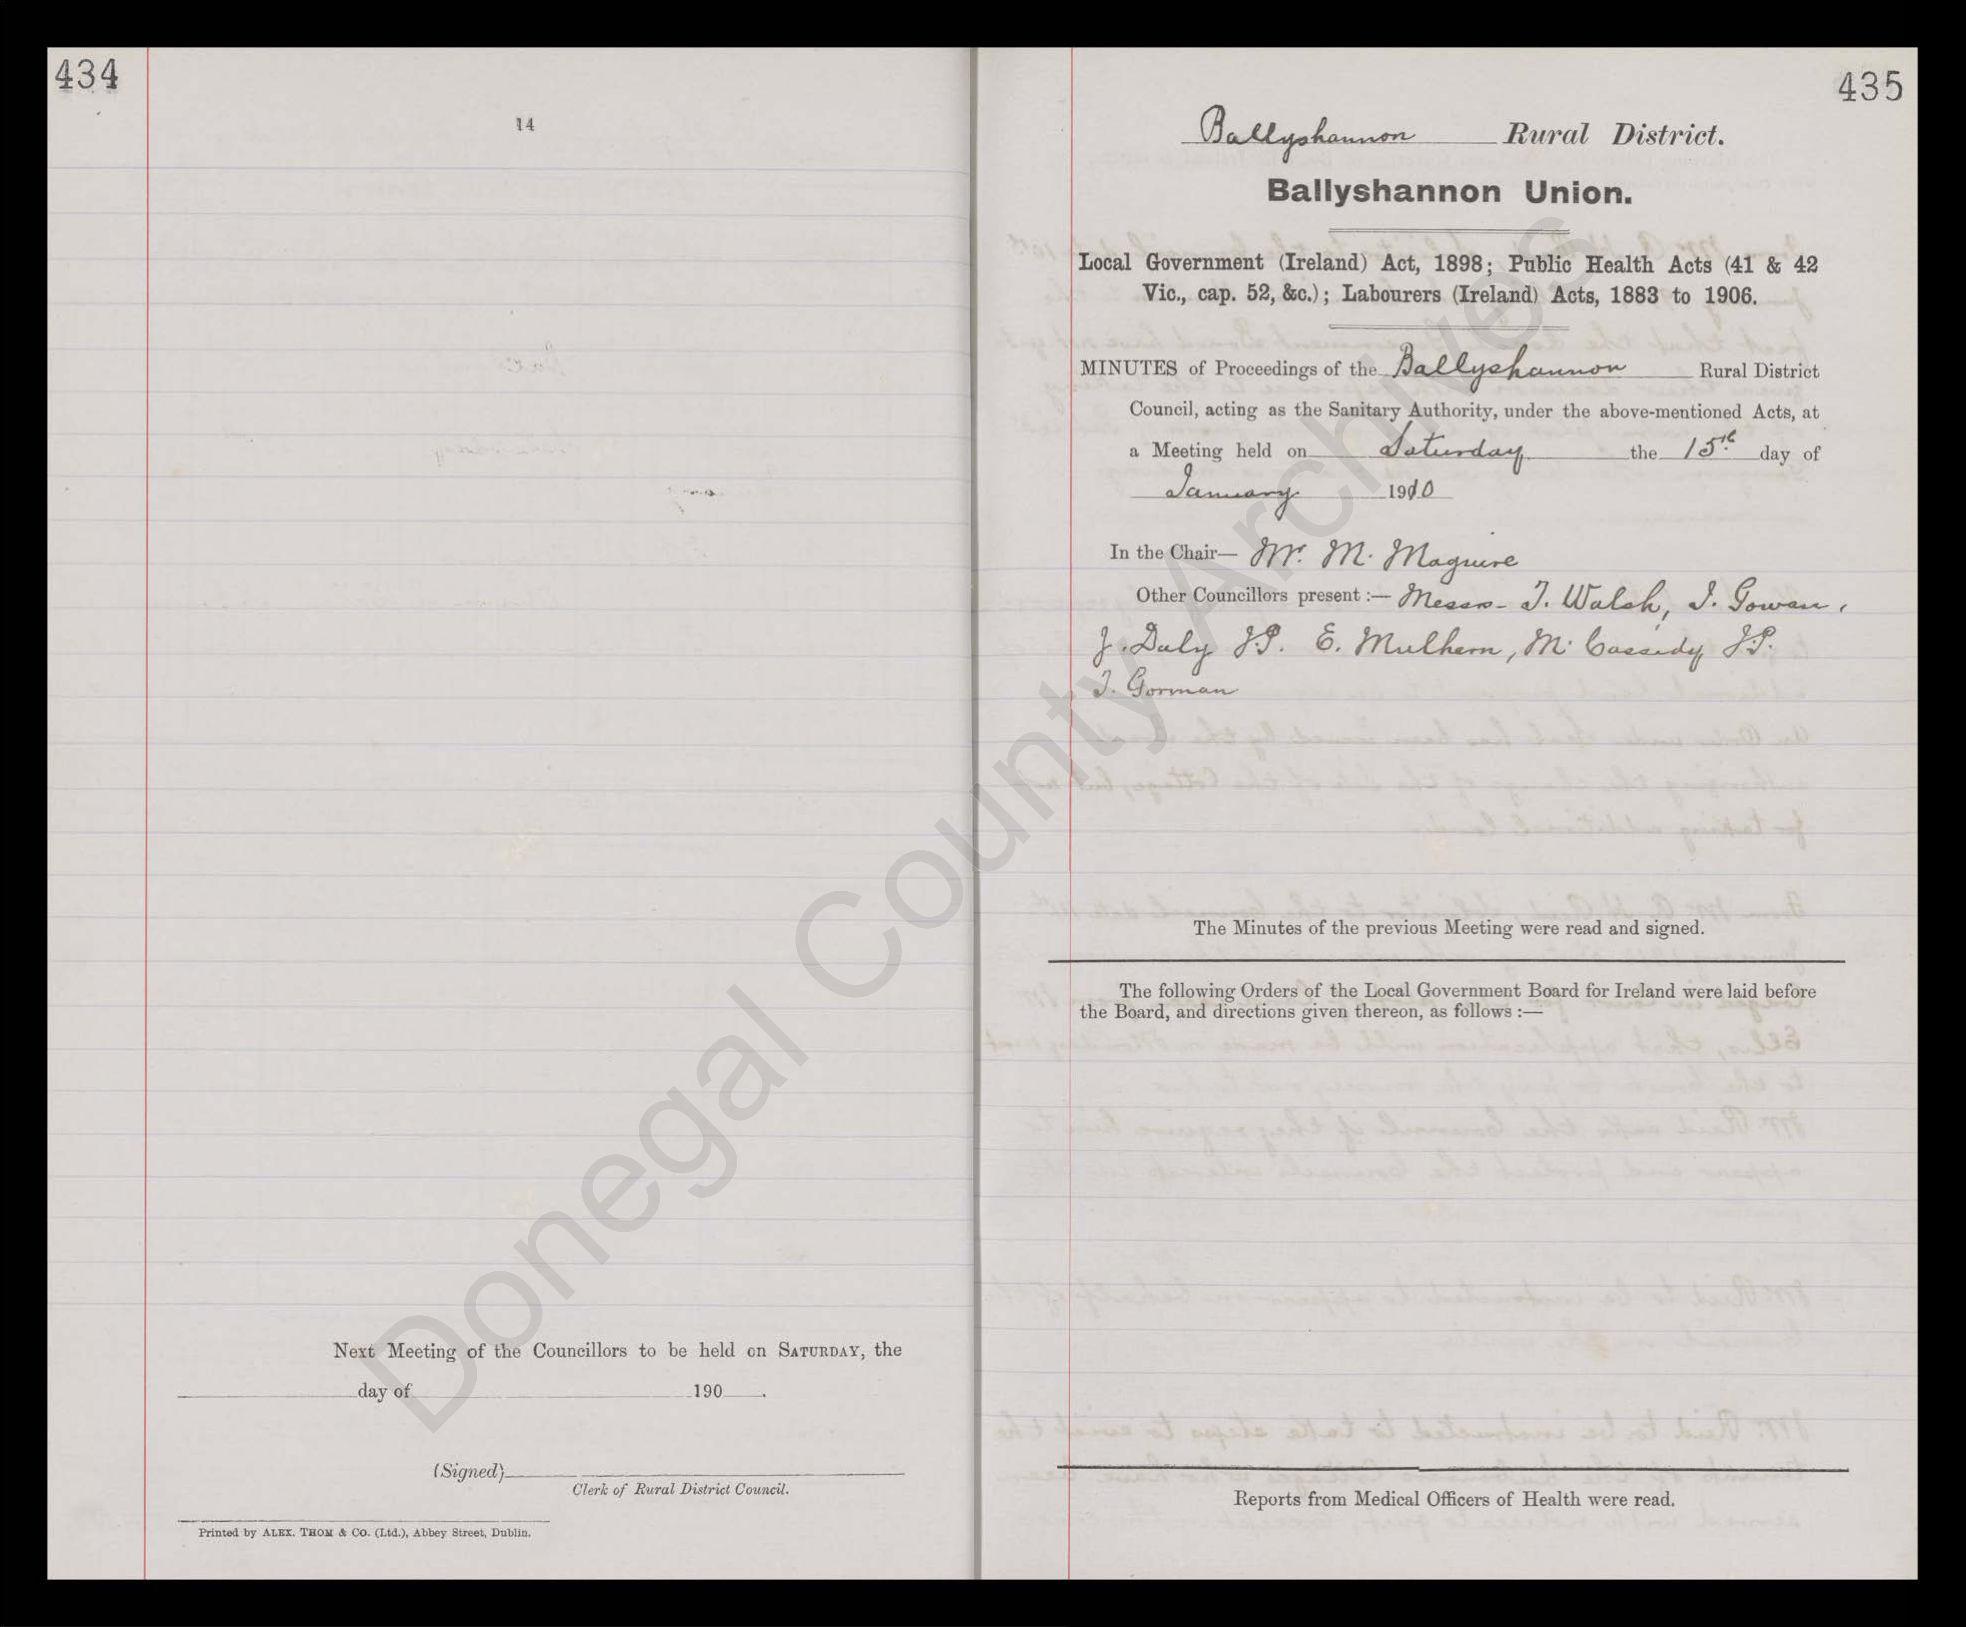 434
14
Next Meeting of the Councillors to be held on SATURDAY, the
day of 190 .
(Signed)
Clerk of Rural District Council.
Printed by ALEX. THOM & Co. (Ltd.), Abbey Street, Dublin.
435
Ballyshannon Rural District.
Ballyshannon Union.
Local Government (Ireland) Act, 1898; Public Health Acts (41 & 42
Vic., cap. 52, &c.); Labourers (Ireland) Acts, 1883 to 1906.
MINUTES of Proceedings of the Ballyshannon Rural District
Council, acting as the Sanitary Authority, under the above-mentioned Acts, at
a Meeting held on Saturday the 15th day of
January 1910
In the Chair— Mr. M. Maguire
Other Councillors present :— Messrs- T. Walsh, T. Gowan,
J. Daly J.P. E. Mulhern, M. Cassidy J.P.
T. Gorman
The Minutes of the previous Meeting were read and signed.
The following Orders of the Local Government Board for Ireland were laid before
the Board, and directions given thereon, as follows :—
Reports from Medical Officers of Health were read.
Donegal County Archives